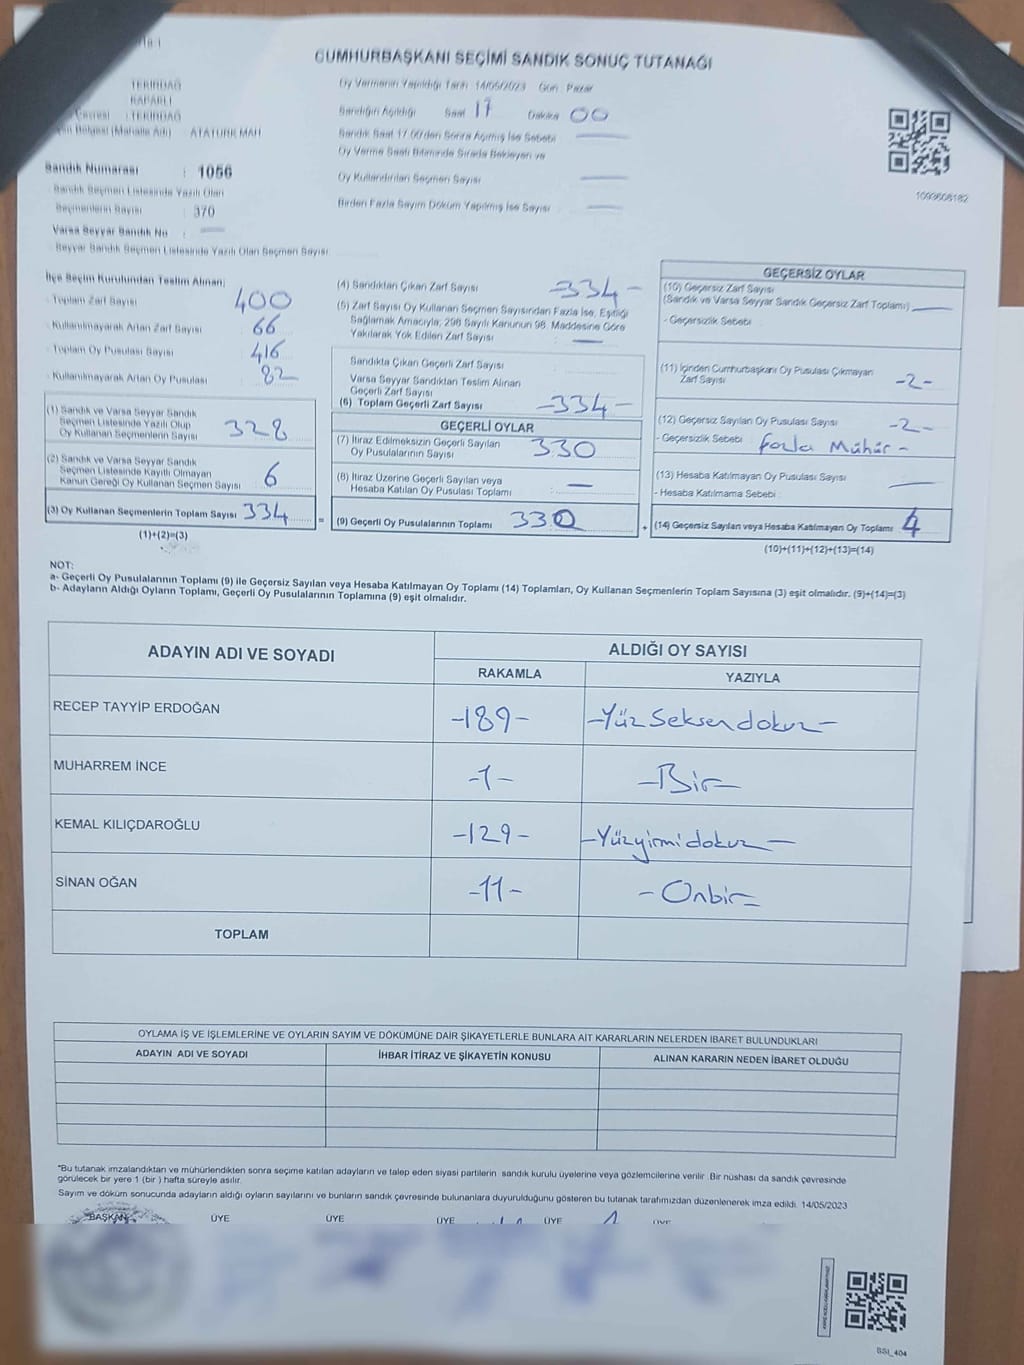 CUMHURBAŞKANI SEÇİMİ SANDIK SONUÇ TUTANAĞI
TEKİRDAĞ
KAPAKLI
Çevresi : TEKİRDAĞ
Bölgesi (Mahalle Adı) : ATATÜRK MAH.
Sandık Numarası : 1056
Sandık Seçmen Listesinde Yazılı Olan
Seçmenlerin Sayısı : 370
Varsa Seyyar Sandık No :
Seyyar Sandık Seçmen Listesinde Yazılı Olan Seçmen Sayısı
Oy Vermenin Yapıldığı Tarih 14/05/2023 Gün Pazar
Sandığın Açıldığı Saat 17 Dakika 00
Sandık Saat 17.00'den Sonra Açılmış İse Sebebi
Oy Verme Saati Bitiminde Sırada Bekleyen ve
Oy Kullandırılan Seçmen Sayısı
Birden Fazla Sayım Döküm Yapılmış İse Sayısı
1093608182
İlçe Seçim Kurulundan Teslim Alınan;
- Toplam Zarf Sayısı 400
- Kullanılmayarak Artan Zarf Sayısı 66
- Toplam Oy Pusulası Sayısı 416
- Kullanılmayarak Artan Oy Pusulası 82
(1) Sandık ve Varsa Seyyar Sandık
Seçmen Listesinde Yazılı Olup
Oy Kullanan Seçmenlerin Sayısı 328
(2) Sandık ve Varsa Seyyar Sandık
Seçmen Listesinde Kayıtlı Olmayan
Kanun Gereği Oy Kullanan Seçmen Sayısı 6
(3) Oy Kullanan Seçmenlerin Toplam Sayısı 334
(1)+(2)=(3)
(4) Sandıktan Çıkan Zarf Sayısı -334-
(5) Zarf Sayısı Oy Kullanan Seçmen Sayısından Fazla İse, Eşitliği
Sağlamak Amacıyla, 298 Sayılı Kanunun 98. Maddesine Göre
Yakılarak Yok Edilen Zarf Sayısı —
Sandıkta Çıkan Geçerli Zarf Sayısı
Varsa Seyyar Sandıktan Teslim Alınan
Geçerli Zarf Sayısı
(6) Toplam Geçerli Zarf Sayısı -334-
GEÇERLİ OYLAR
(7) İtiraz Edilmeksizin Geçerli Sayılan
Oy Pusulalarının Sayısı 330
(8) İtiraz Üzerine Geçerli Sayılan veya
Hesaba Katılan Oy Pusulası Toplamı —
= (9) Geçerli Oy Pusulalarının Toplamı 330
GEÇERSİZ OYLAR
(10) Geçersiz Zarf Sayısı
(Sandık ve Varsa Seyyar Sandık Geçersiz Zarf Toplamı) —
- Geçersizlik Sebebi
(11) İçinden Cumhurbaşkanı Oy Pusulası Çıkmayan
Zarf Sayısı -2-
(12) Geçersiz Sayılan Oy Pusulası Sayısı -2-
- Geçersizlik Sebebi fazla Mühür -
(13) Hesaba Katılmayan Oy Pusulası Sayısı —
- Hesaba Katılmama Sebebi
+ (14) Geçersiz Sayılan veya Hesaba Katılmayan Oy Toplamı 4
(10)+(11)+(12)+(13)=(14)
NOT:
a- Geçerli Oy Pusulalarının Toplamı (9) ile Geçersiz Sayılan veya Hesaba Katılmayan Oy Toplamı (14) Toplamları, Oy Kullanan Seçmenlerin Toplam Sayısına (3) eşit olmalıdır. (9)+(14)=(3)
b- Adayların Aldığı Oyların Toplamı, Geçerli Oy Pusulalarının Toplamına (9) eşit olmalıdır.
ADAYIN ADI VE SOYADI
ALDIĞI OY SAYISI
RAKAMLA YAZIYLA
RECEP TAYYİP ERDOĞAN -189- -Yüz Seksendokuz-
MUHARREM İNCE -1- -Bir-
KEMAL KILIÇDAROĞLU -129- -Yüzyirmidokuz-
SİNAN OĞAN -11- -Onbir-
TOPLAM
OYLAMA İŞ VE İŞLEMLERİNE VE OYLARIN SAYIM VE DÖKÜMÜNE DAİR ŞİKAYETLERLE BUNLARA AİT KARARLARIN NELERDEN İBARET BULUNDUKLARI
ADAYIN ADI VE SOYADI İHBAR İTİRAZ VE ŞİKAYETİN KONUSU ALINAN KARARIN NEDEN İBARET OLDUĞU
*Bu tutanak imzalandıktan ve mühürlendikten sonra seçime katılan adayların ve talep eden siyasi partilerin sandık kurulu üyelerine veya gözlemcilerine verilir. Bir nüshası da sandık çevresinde
görülecek bir yere 1 (bir) hafta süreyle asılır.
Sayım ve döküm sonucunda adayların aldığı oyların sayılarını ve bunların sandık çevresinde bulunanlara duyurulduğunu gösteren bu tutanak tarafımızdan düzenlenerek imza edildi. 14/05/2023
BAŞKAN ÜYE ÜYE ÜYE ÜYE ÜYE
BSI_404